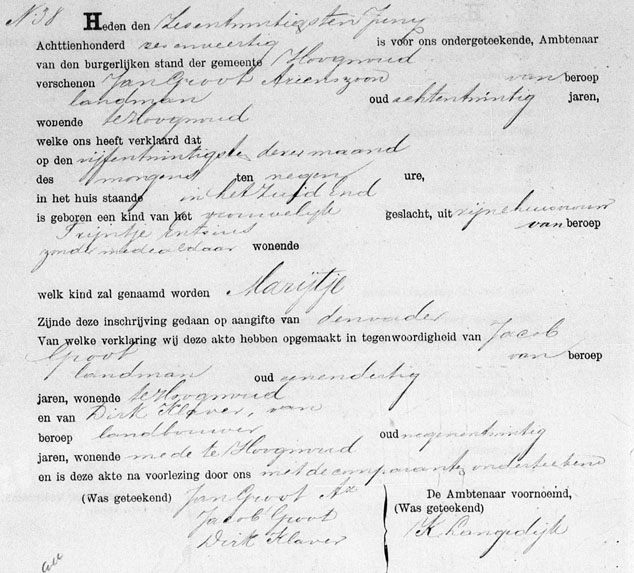 N 38 Heden den Zesentwintigsten Juny
Achttienhonderd zesenveertig is voor ons ondergeteekende, Ambtenaar
van den burgerlijken stand der gemeente Hoogwoud
verschenen Jan Groot Arienszoon van beroep
landman oud achtentwintig jaren,
wonende te Hoogwoud
welke ons heeft verklaard dat
op den vijfentwintigste dezer maand
des morgens ten negen ure,
in het huis staande in het Zuid End
is geboren een kind van het vrouwelijk geslacht, uit zijne huisvrouw
Trijntje van beroep
zonder mede aldaar wonende
welk kind zal genaamd worden Marijtje
Zijnde deze inschrijving gedaan op aangifte van den vader
Van welke verklaring wij deze akte hebben opgemaakt in tegenwoordigheid van Jacob
Groot van beroep
landman oud eenendertig
jaren, wonende te Hoogwoud
en van Dirk Klaver, van
beroep landbouwer oud negenentwintig
jaren, wonende mede te Hoogwoud
en is deze akte na voorlezing door ons met de comparanten onderteekend
(Was geteekend) Jan Groot Az
Jacob Groot
Dirk Klaver
De Ambtenaar voornoemd,
(Was geteekend)
K Langedijk